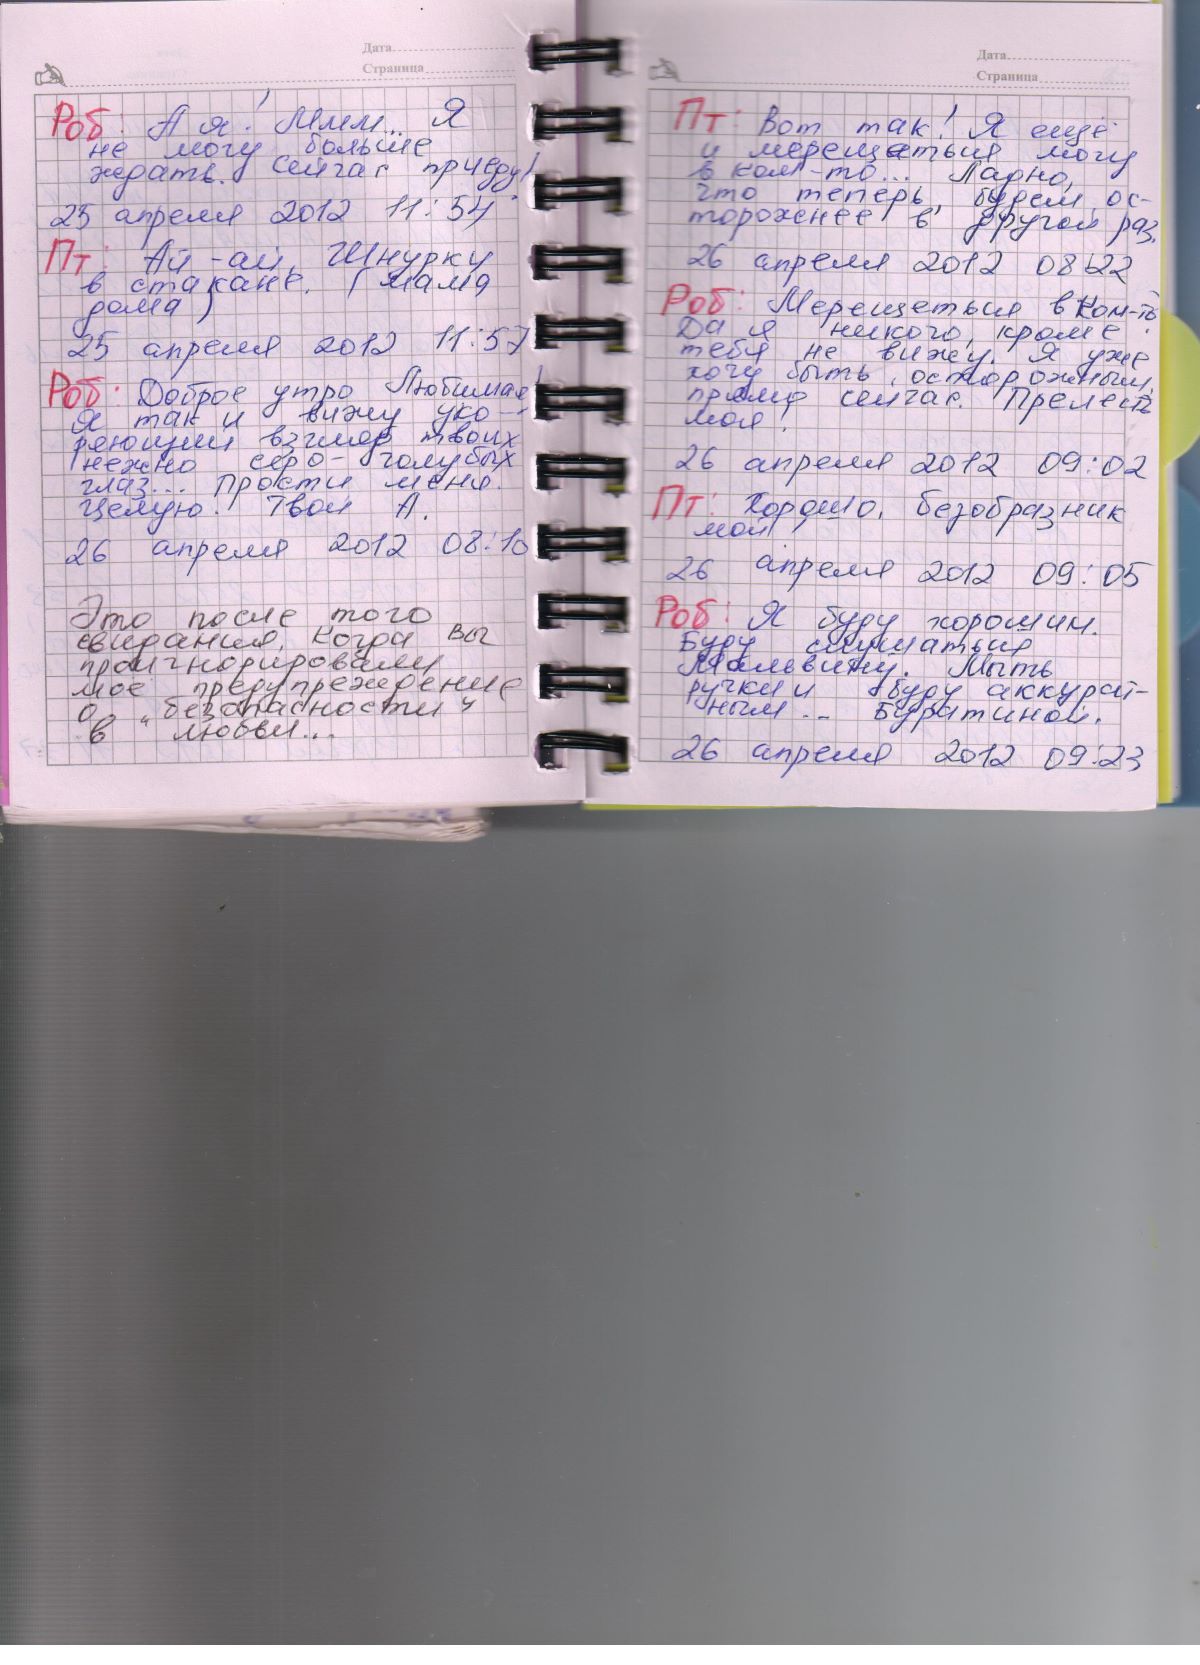 Дата
Страница
Роб: А я! Ммм... Я
не могу больше
ждать. Сейчас приеду!
25 апреля 2012 11:54
Пт: Ай-ай, Шнурку
в стакане. (Мама
дома)
25 апреля 2012 11:57
Роб: Доброе утро Любимая!
Я так и вижу уко-
ряющий взгляд твоих
нежно серо-голубых
глаз... Прости меня.
Целую. Твой А.
26 апреля 2012 08:10
Это после того
свидания, когда вы
проигнорировали
мое предупреждение
о „безопасности"
в любви...
Дата
Страница
Пт: Вот так! Я ещё
и мерещиться могу
в ком-то... Ладно,
что теперь, будем ос-
торожнее в другой раз.
26 апреля 2012 08:22
Роб: Мерещеться в ком-то
Да я никого, кроме
тебя не вижу. Я уже
хочу быть осторожным,
прямо сейчас. Прелесть
моя!
26 апреля 2012 09:02
Пт: Хорошо, безобразник
мой
26 апреля 2012 09:05
Роб: Я буду хорошим.
Буду слушаться
Мальвину. Мыть
ручки и буду аккурат-
ным... Буратиной.
26 апреля 2012 09:23